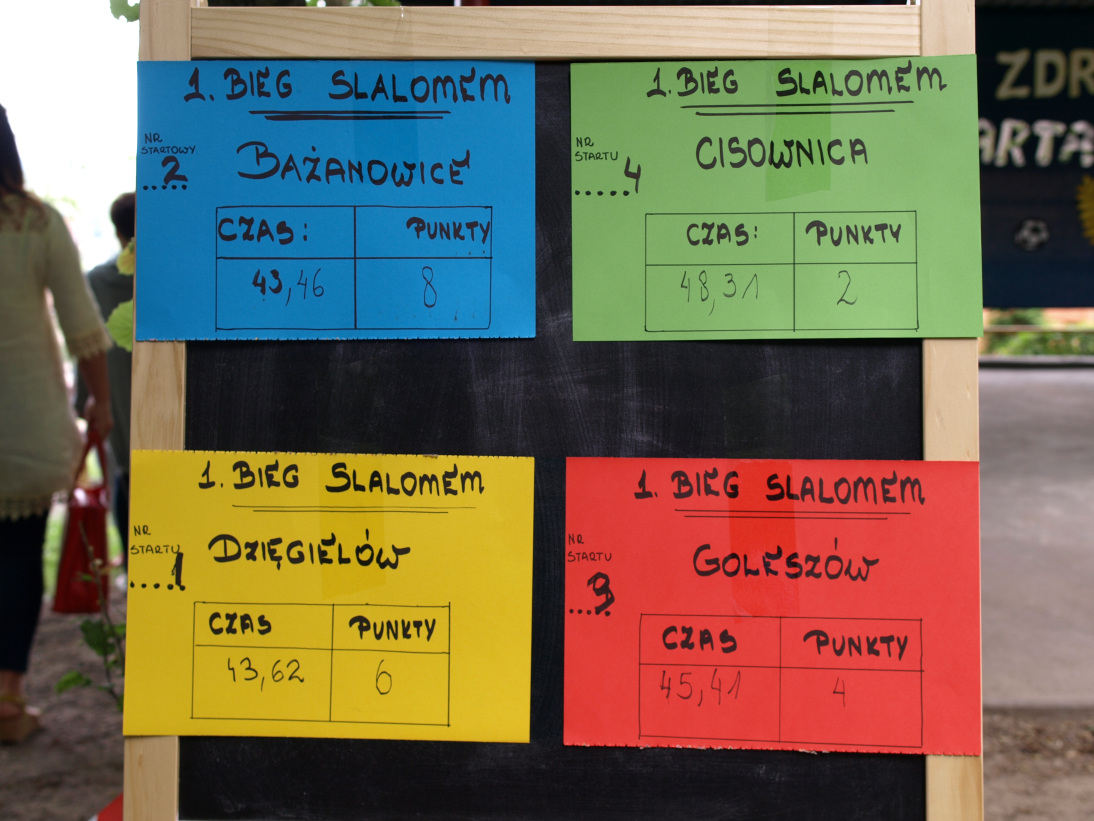 1. BIEG SLALOMEM
NR
STARTOWY
....2
BAŻANOWICE
CZAS: PUNKTY
43,46 8
1. BIEG SLALOMEM
NR
STARTU
.....4
CISOWNICA
CZAS: PUNKTY
48,31 2
1. BIEG SLALOMEM
NR
STARTU
....1
DZIĘGIELÓW
CZAS PUNKTY
43,62 6
1. BIEG SLALOMEM
NR
STARTU
....3
GOLESZÓW
CZAS PUNKTY
45,41 4